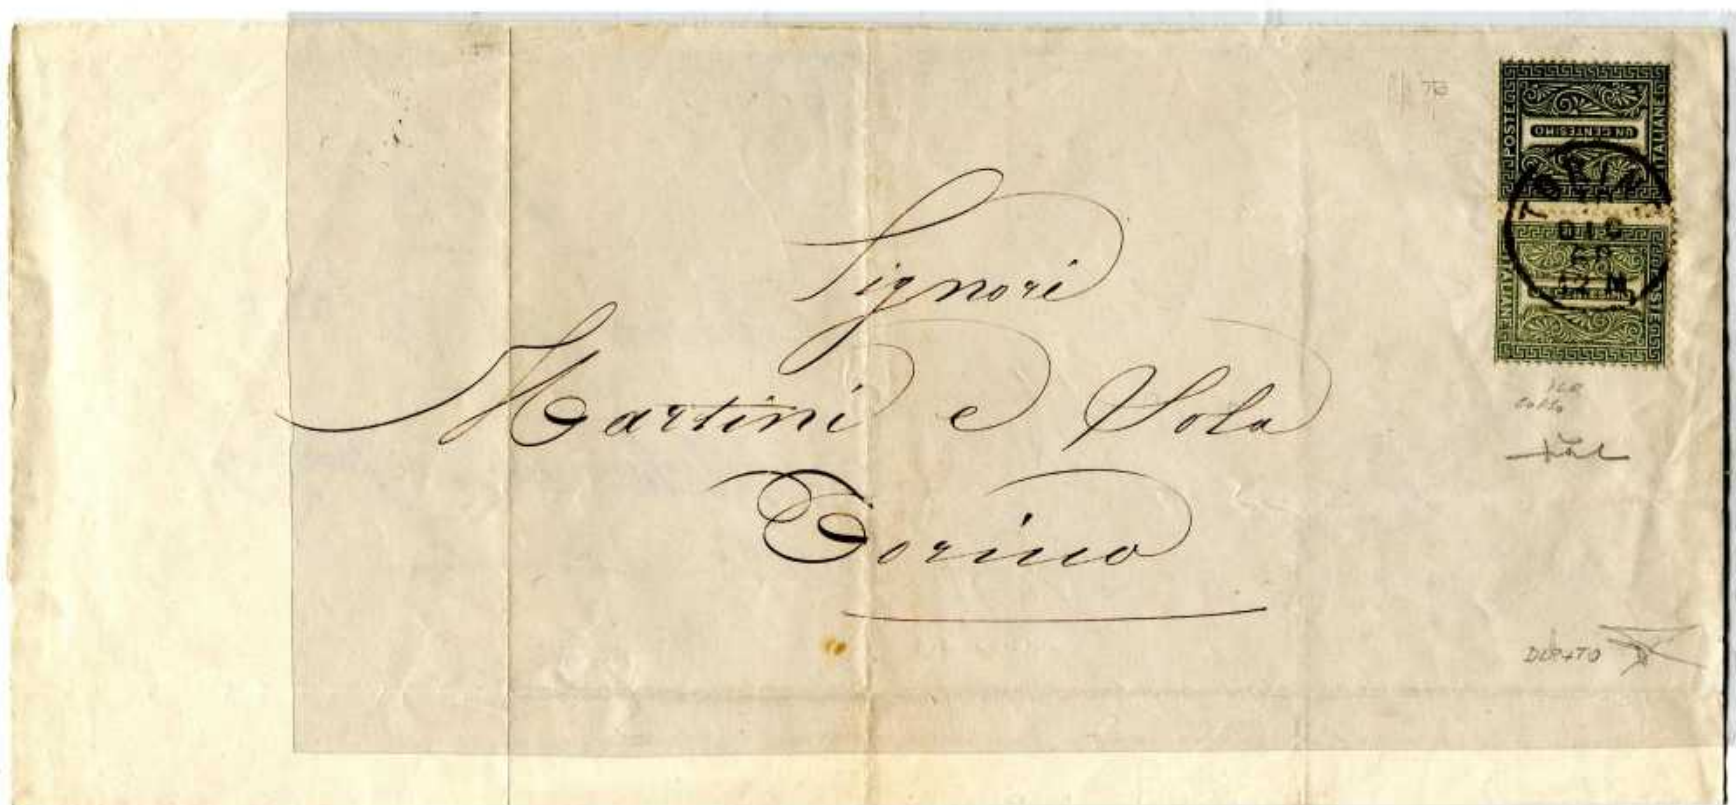 POSTE
ITALIANE
UN CENTESIMO
TORINO
DIC
68
12 M
Signori
Martini e Sola
Torino